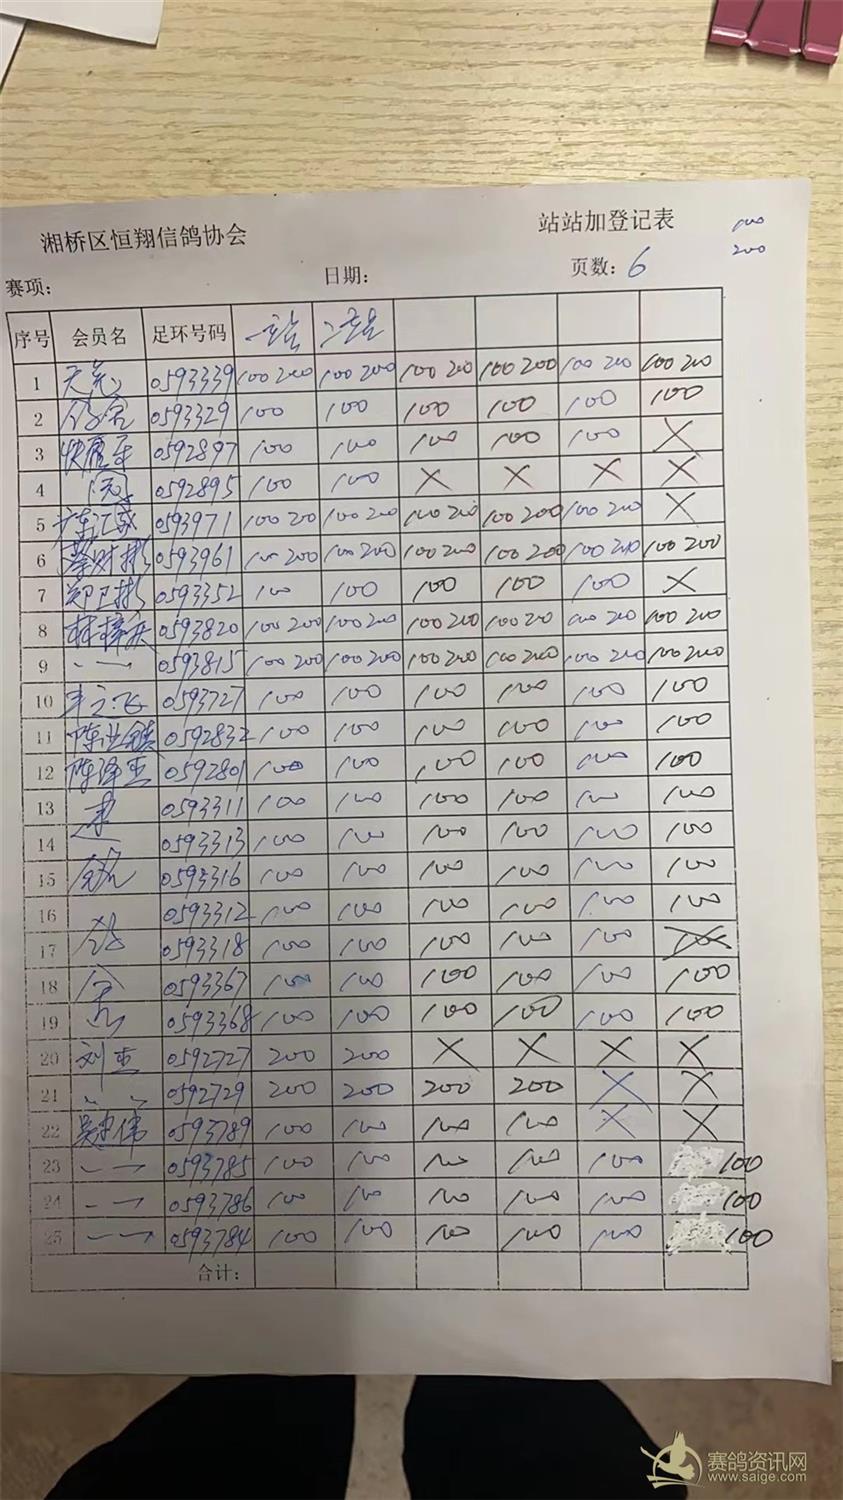 湘桥区恒翔信鸽协会 站站加登记表 100
200
赛项: 日期: 页数: 6
序号 会员名 足环号码 一站 二站
1 0593339 100 200 100 200 100 200 100 200 100 200 100 200
2 0593329 100 100 100 100 100 100
3 0592897 100 100 100 100 100 ×
4 0592895 100 100 × × × ×
5 广东汇威 0593971 100 200 100 200 100 200 100 200 100 200 ×
6 蔡财彬 0593961 100 200 100 200 100 200 100 200 100 200 100 200
7 郑卫彬 0593352 100 100 100 100 100 ×
8 0593820 100 200 100 200 100 200 100 200 100 200 100 200
9 0593815 100 200 100 200 100 200 100 200 100 200 100 200
10 0593727 100 100 100 100 100 100
11 0592832 100 100 100 100 100 100
12 陈泽杰 0592801 100 100 100 100 100 100
13 0593311 100 100 100 100 100 100
14 0593313 100 100 100 100 100 100
15 0593316 100 100 100 100 100 100
16 0593312 100 100 100 100 100 100
17 0593318 100 100 100 100 100
18 0593367 100 100 100 100 100 100
19 0593368 100 100 100 100 100 100
20 刘杰 0592727 200 200 × × × ×
21 0592729 200 200 200 200 × ×
22 0593789 100 100 100 100 × ×
23 0593785 100 100 100 100 100 100
24 0593786 100 100 100 100 100 100
25 0593784 100 100 100 100 100 100
合计:
赛鸽资讯网
www.saige.com